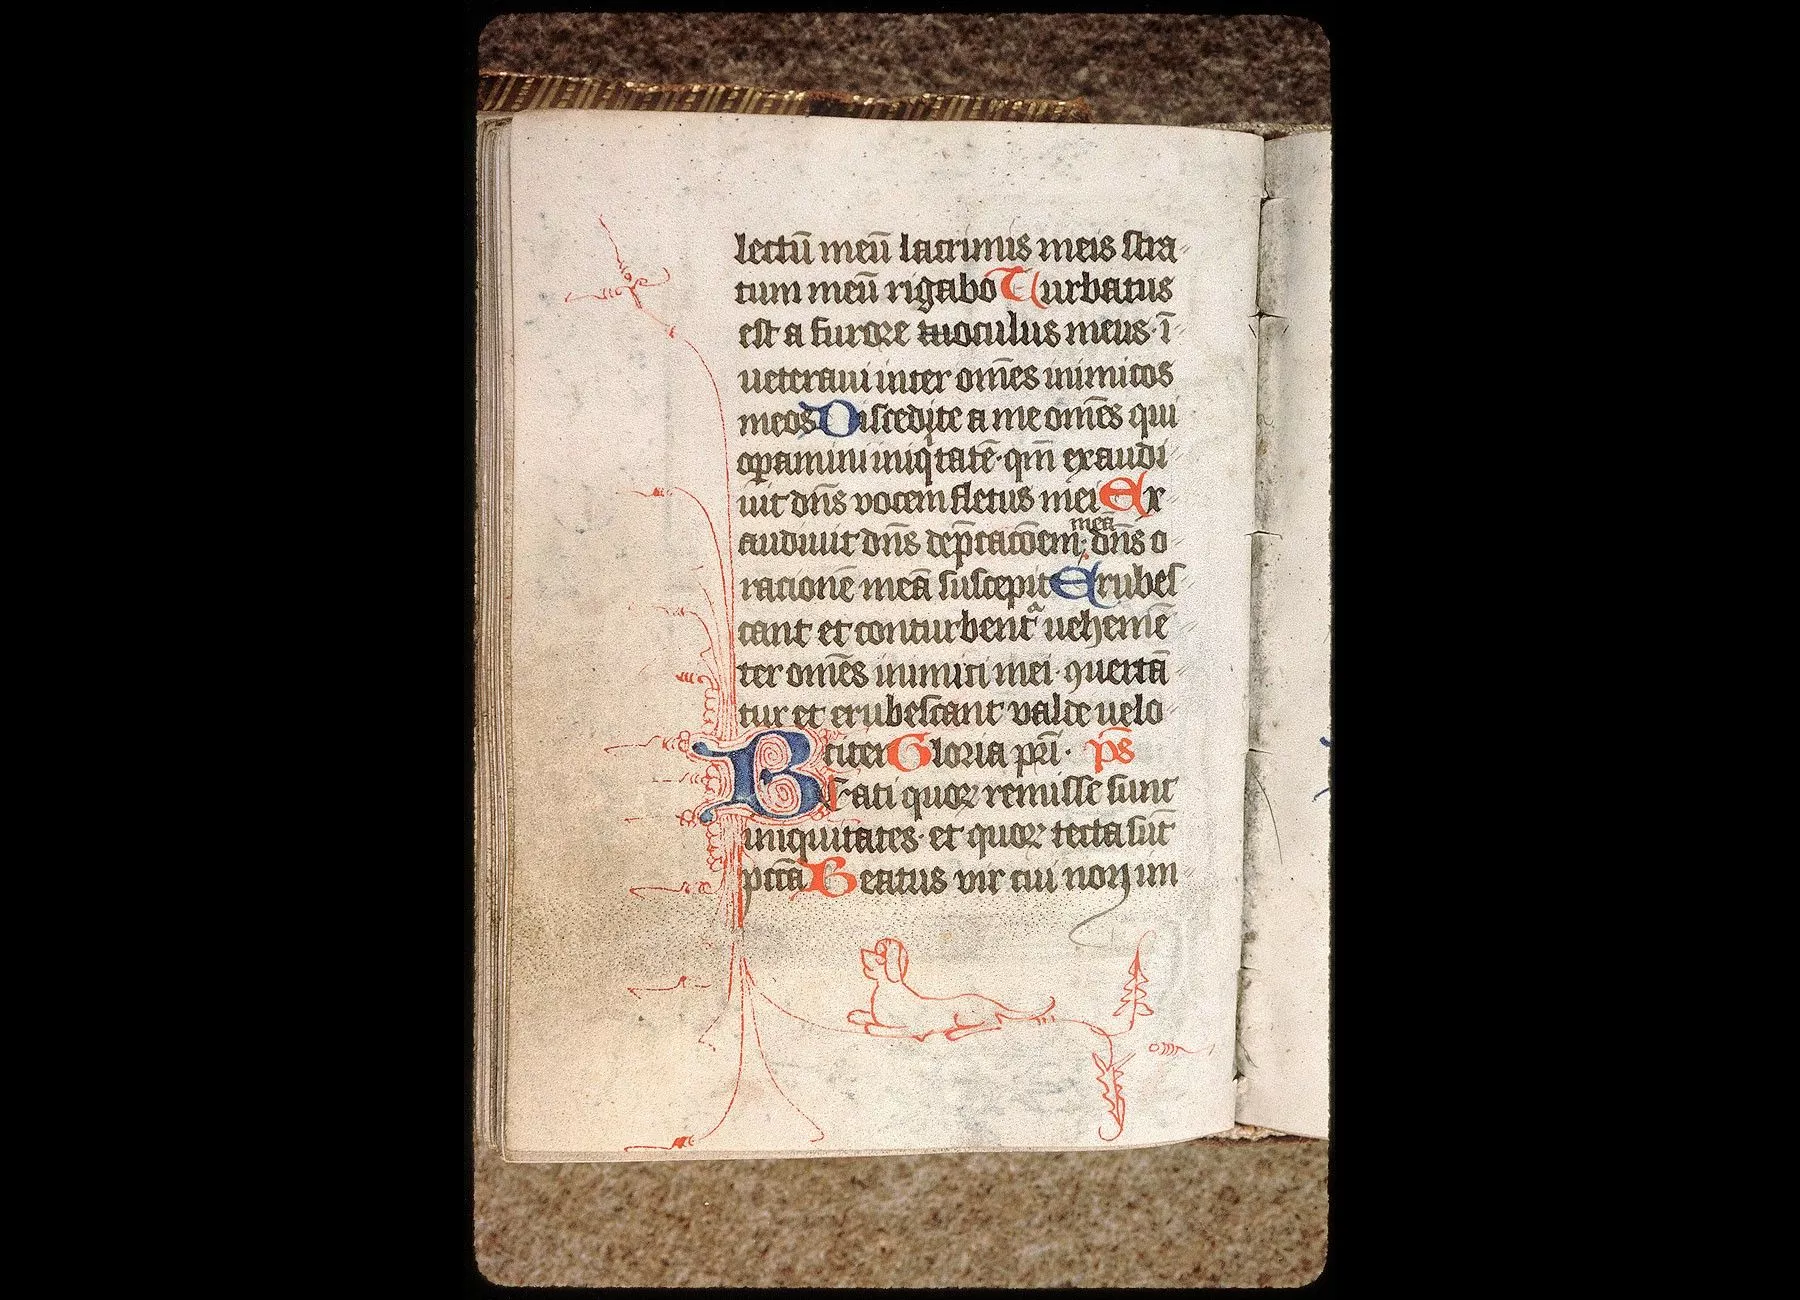 lectū meū lacrimis meis stra
tum meū rigabo Turbatus
est a furore meus ī
ueteraui inter om̄es inimicos
meos Discedite a me om̄es qui
oꝑamini iniqtatē · qm̄ exaudi
uit dn̄s vocem fletus mei Ex
audiuit dn̄s dep̄cacōem meā dn̄s o
racionē meā suscepit Erubes
cant et conturbent᷑ uehemē
ter om̄es inimici mei · ꝯuertā
tur et erubescant valde uelo
citer Gloria pr̄i · p̄s
Beati quoꝝ remisse sunt
iniquitates · et quoꝝ tecta sūt
pccā Beatus vir cui non im